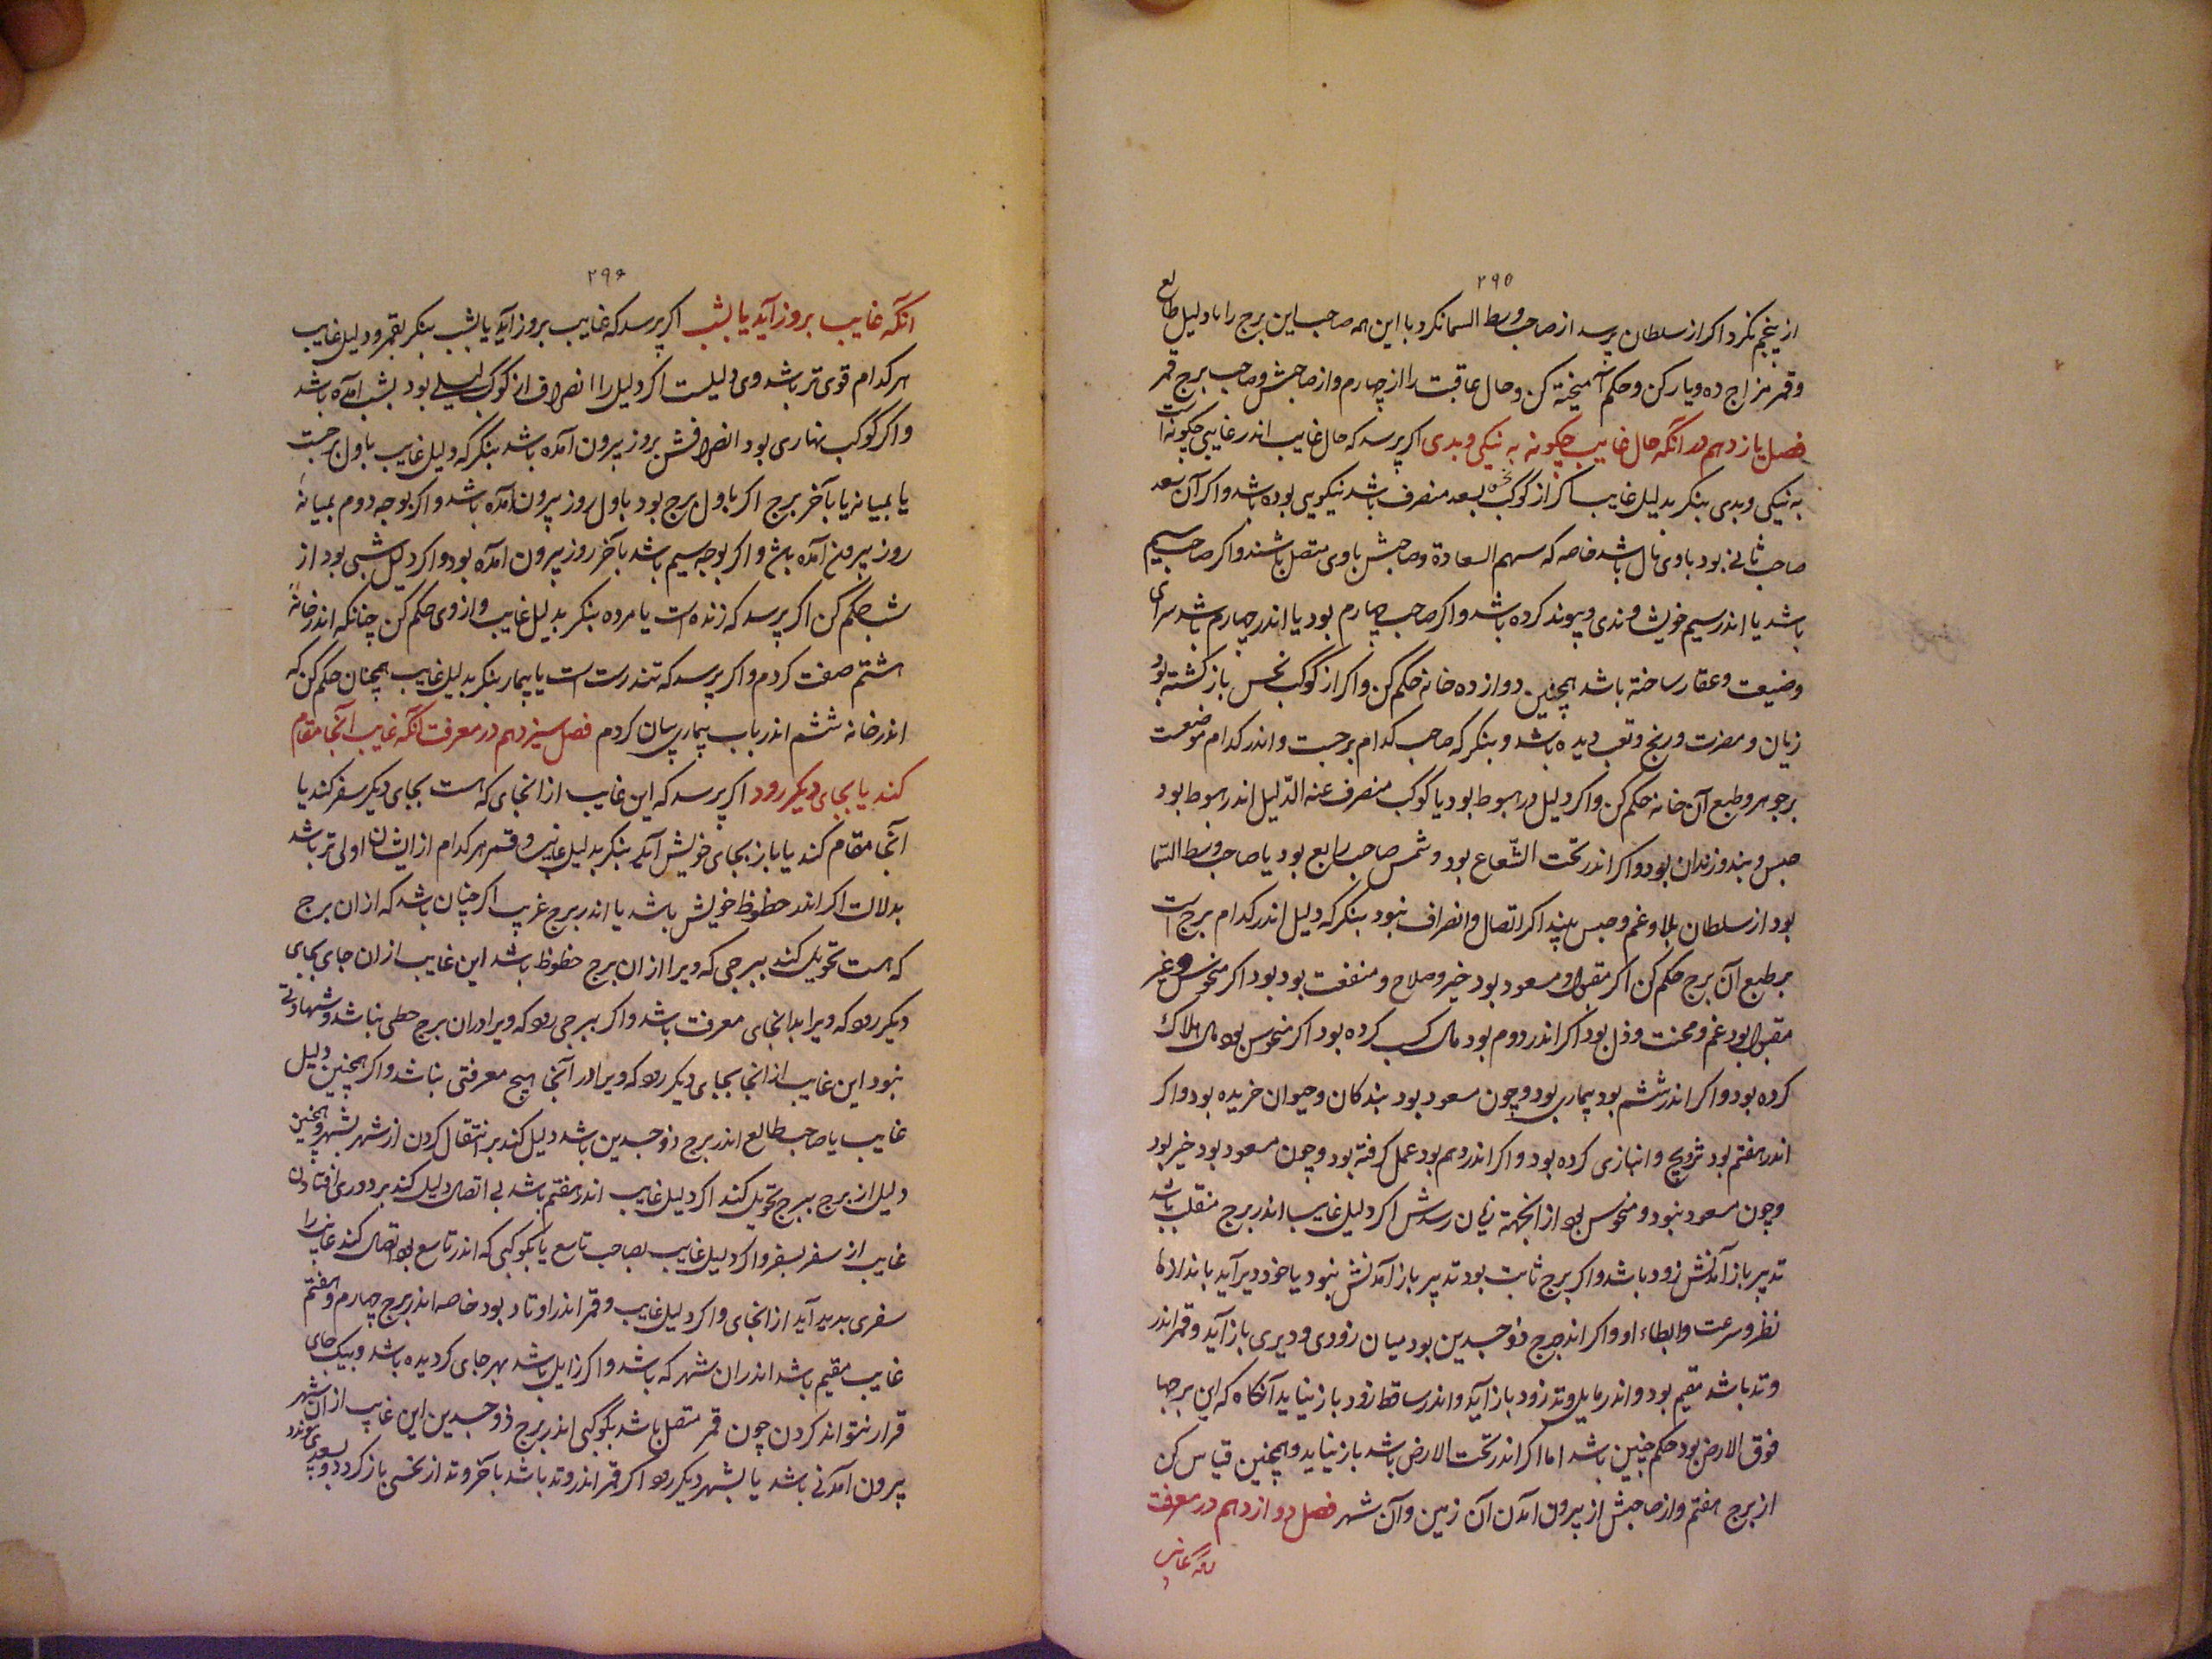 ۲۹۵
از پنجم نکرد اکر از سلطان پرسد از صاحب وسط السما نکرد با این همه صاحب این برج را با دلیل طالع
و قمر مزاج ده و یار کن و حکم آمیخته کن و حال عاقبت را از چهارم و از صاحبش و صاحب برج قمر
فصل یازدهم در انکه حال غایب چکونه به نیکی و بدی اکر پرسد که حال غایب اندر غایبی چکونه است
به نیکی و بدی بنکر بدلیل غایب اکر از کوکب سعد منصرف باشد نیکویی بوده باشد و اکر آن سعد
صاحب ثانی بود باوی مال باشد خاصه که سهم السعادة و صاحبش باوی متصل باشند و اکر صاحب سیم
باشد یا اندر سیم خویشاوندی و پیوند کرده باشد و اکر صاحب چهارم بود یا اندر چهارم باشد سرای
و ضیعت و عقار ساخته باشد همچنین دوازده خانه حکم کن و اکر از کوکب نحس باز کشته بود
زیان و مضرت و رنج و تعب دیده باشد و بنکر که صاحب کدام برجست و اندر کدام موضعست
بر جوهر و طبع آن خانه حکم کن و اکر دلیل در هبوط بود یا کوکب منصرف عنه الدّلیل اندر هبوط بود
حبس و بند و زندان بود و اکر اندر تحت الشّعاع بود و شمس صاحب رابع بود یا صاحب وسط السّما
بود از سلطان بلا و غم و حبس بیند اکر اتصال و انصراف نبود بنکر که دلیل اندر کدام برج است
بر طبع آن برج حکم کن اکر مقبول و مسعود بود خیر و صلاح و منفعت بود بود اکر منحوس و غیر
مقبول بود غم و محنت و ذل بود اکر اندر دوم بود مال کسب کرده بود اکر منحوس بود مال هلاک
کرده بود و اکر اندر ششم بود بیماری بود و چون مسعود بود بندکان و حیوان خریده بود و اکر
اندر هفتم بود تزویج و انبازی کرده بود و اکر اندر دهم بود عمل کرفته بود و چون مسعود بود خیر بود
و چون مسعود نبود و منحوس بود از انجهة زیان رسدش اکر دلیل غایب اندر برج منقلب باشد
تدبیر باز آمدنش زود باشد و اکر برج ثابت بود تدبیر باز آمدنش نبود یا خود دیر آید باندازه
نظر و سرعت و ابطاء او و اکر اندر برج ذو جسدین بود میان زودی و دیری باز آید و قمر اندر
وتد باشد مقیم بود و اندر مایل وتد زود باز آید و اندر ساقط زود باز نیاید آنکاه که این برجها
فوق الارض بود حکم چنین باشد اما اکر اندر تحت الارض باشد باز نیاید و همچنین قیاس کن
از برج هفتم و از صاحبش از بیرون آمدن آن زمین و آن شهر فصل دوازدهم در معرفت
۲۹۶
انکه غایب بروز آید یا بشب اکر پرسد که غایب بروز آید یا بشب بنکر بقمر و دلیل غایب
هر کدام قوی تر باشد وی دلیلست اکر دلیل را انصراف از کوکب لیلی بود بشب آمده باشد
و اکر کوکب نهاری بود انصرافش بروز بیرون آمده باشد بنکر که دلیل غایب باول برجست
یا بمیانه یا بآخر برج اکر باول برج بود باول روز بیرون آمده باشد و اکر بوجه دوم بمیانه
روز بیرون آمده باشد و اکر بوجه سیم باشد بآخر روز بیرون آمده بود و اکر دلیل شبی بود از
شب حکم کن اکر پرسد که زنده است یا مرده بنکر بدلیل غایب و از وی حکم کن چنانکه اندر خانه
هشتم صفت کردم و اکر پرسد که تندرست است یا بیمار بنکر بدلیل غایب همچنان حکم کن که
اندر خانه ششم اندر باب بیماری بیان کردم فصل سیزدهم در معرفت انکه غایب آنجا مقام
کند یا بجای دیکر رود اکر پرسد که این غایب از انجای که هست بجای دیکر سفر کند یا
آنجا مقام کند یا باز بجای خویش آید بنکر بدلیل غایب و قمر هر کدام از ایشان اولی تر باشد
بدلالت اکر اندر حظوظ خویش باشد یا اندر برج غریب اکر چنان باشد که از ان برج
که هست تحویل کند ببرجی که ویرا از ان برج حظوظ باشد این غایب از ان جای بجای
دیکر رود که ویرا بدانجای معرفت باشد و اکر ببرجی رود که ویرا دران برج حظی نباشد و شهادتی
نبود این غایب از انجا بجای دیکر رود که ویرا در آنجا هیچ معرفتی نباشد و اکر همچنین دلیل
غایب یا صاحب طالع اندر برج ذو جسدین باشد دلیل کند بر انتقال کردن از شهر بشهر و همچنین
دلیل از برج ببرج تحویل کند اکر دلیل غایب اندر هفتم باشد بی اتصال دلیل کند بر دوری افتادن
غایب از سفر بسفر و اکر دلیل غایب بصاحب تاسع یا بکوکبی که اندر تاسع بود اتصال کند غایب را
سفری پدید آید از انجای و اکر دلیل غایب و قمر اندر اوتاد بود خاصه اندر برج چهارم و هفتم
غایب مقیم باشد اندران شهر که باشد و اکر زایل باشد بهر جای کردیده باشد و بیک جای
قرار نتواند کردن چون قمر متصل باشد بکوکبی اندر برج ذو جسدین این غایب از ان شهر
بیرون آمدنی باشد یا بشهر دیکر رود اکر قمر اندر وتد باشد بآخر وتد از نحسی باز کردد و بسعدی پیوندد